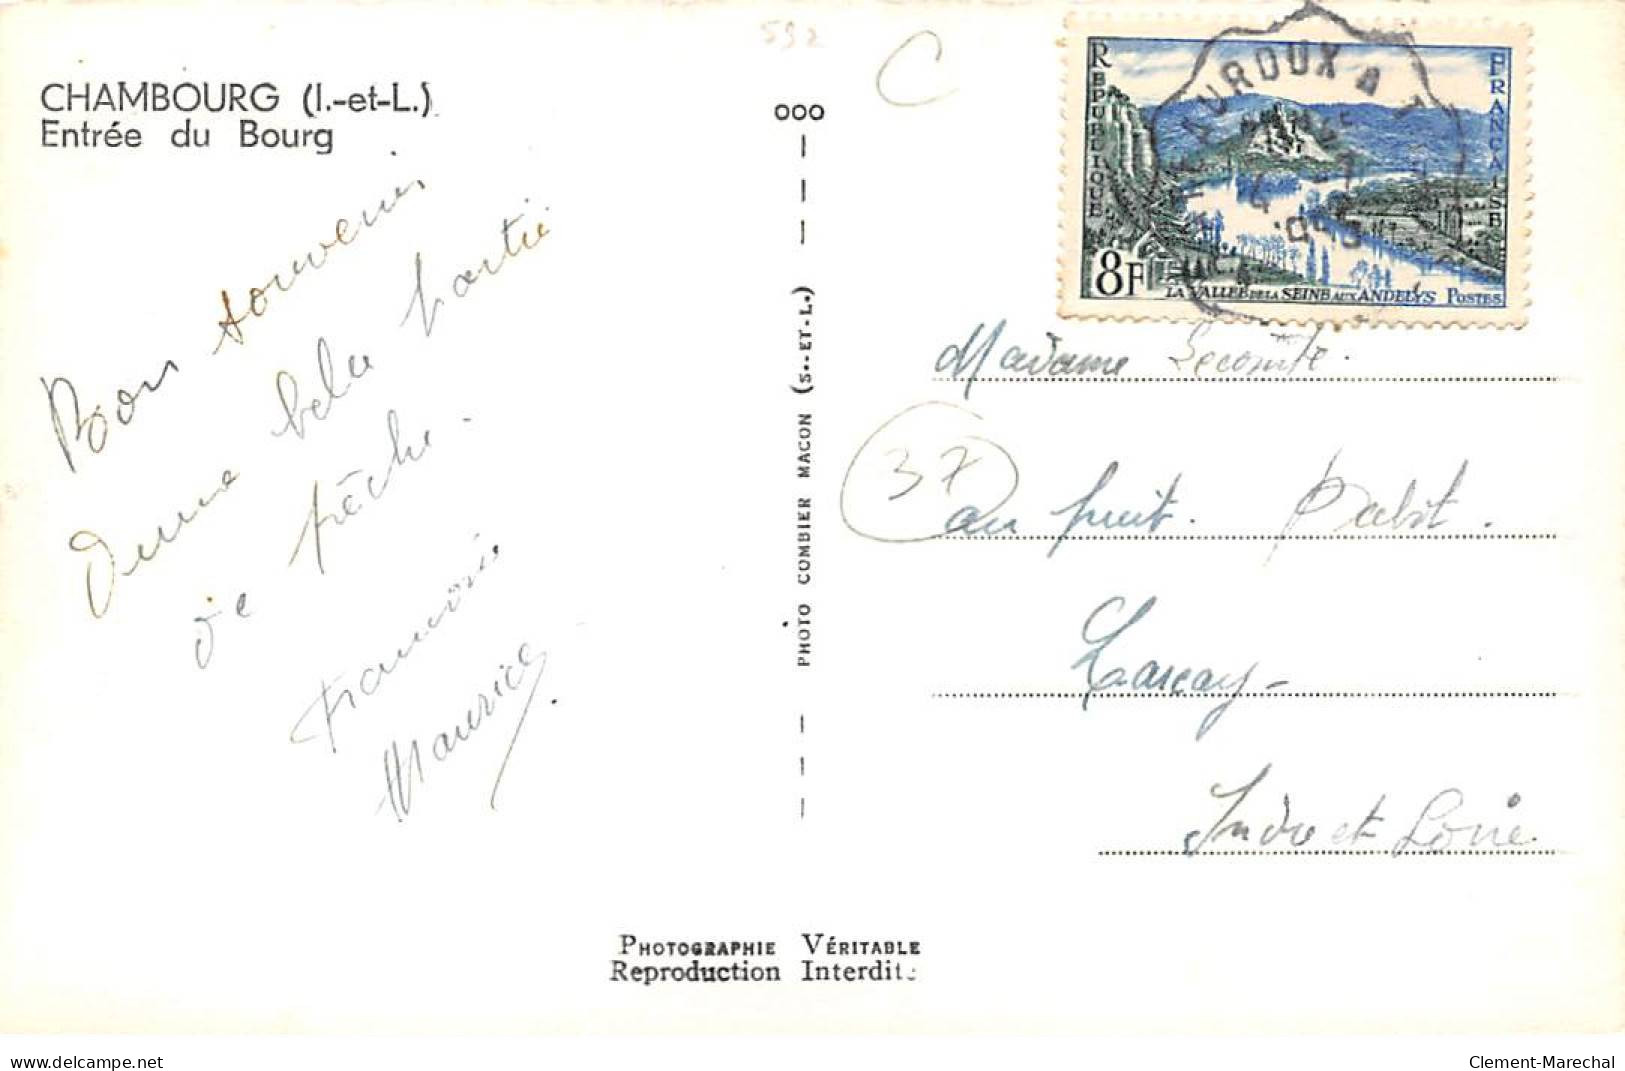 592
CHAMBOURG (I.-et-L.)
Entrée du Bourg
Bon souvenir
d'une bele partie
de pêche.
Francoise
Maurice
ooo
PHOTO COMBIER MACON (S.-ET-L.)
C
REPUBLIQUE
FRANCAISE
8F
LA VALLEE DE LA SEINE AUX ANDELYS POSTES
AUROUX A T
Madame Lecomte.
37
au puit. Pabot.
Larcay-
Indre et Loire
PHOTOGRAPHIE VÉRITABLE
Reproduction Interdite
www.delcampe.net
Clement-Marechal